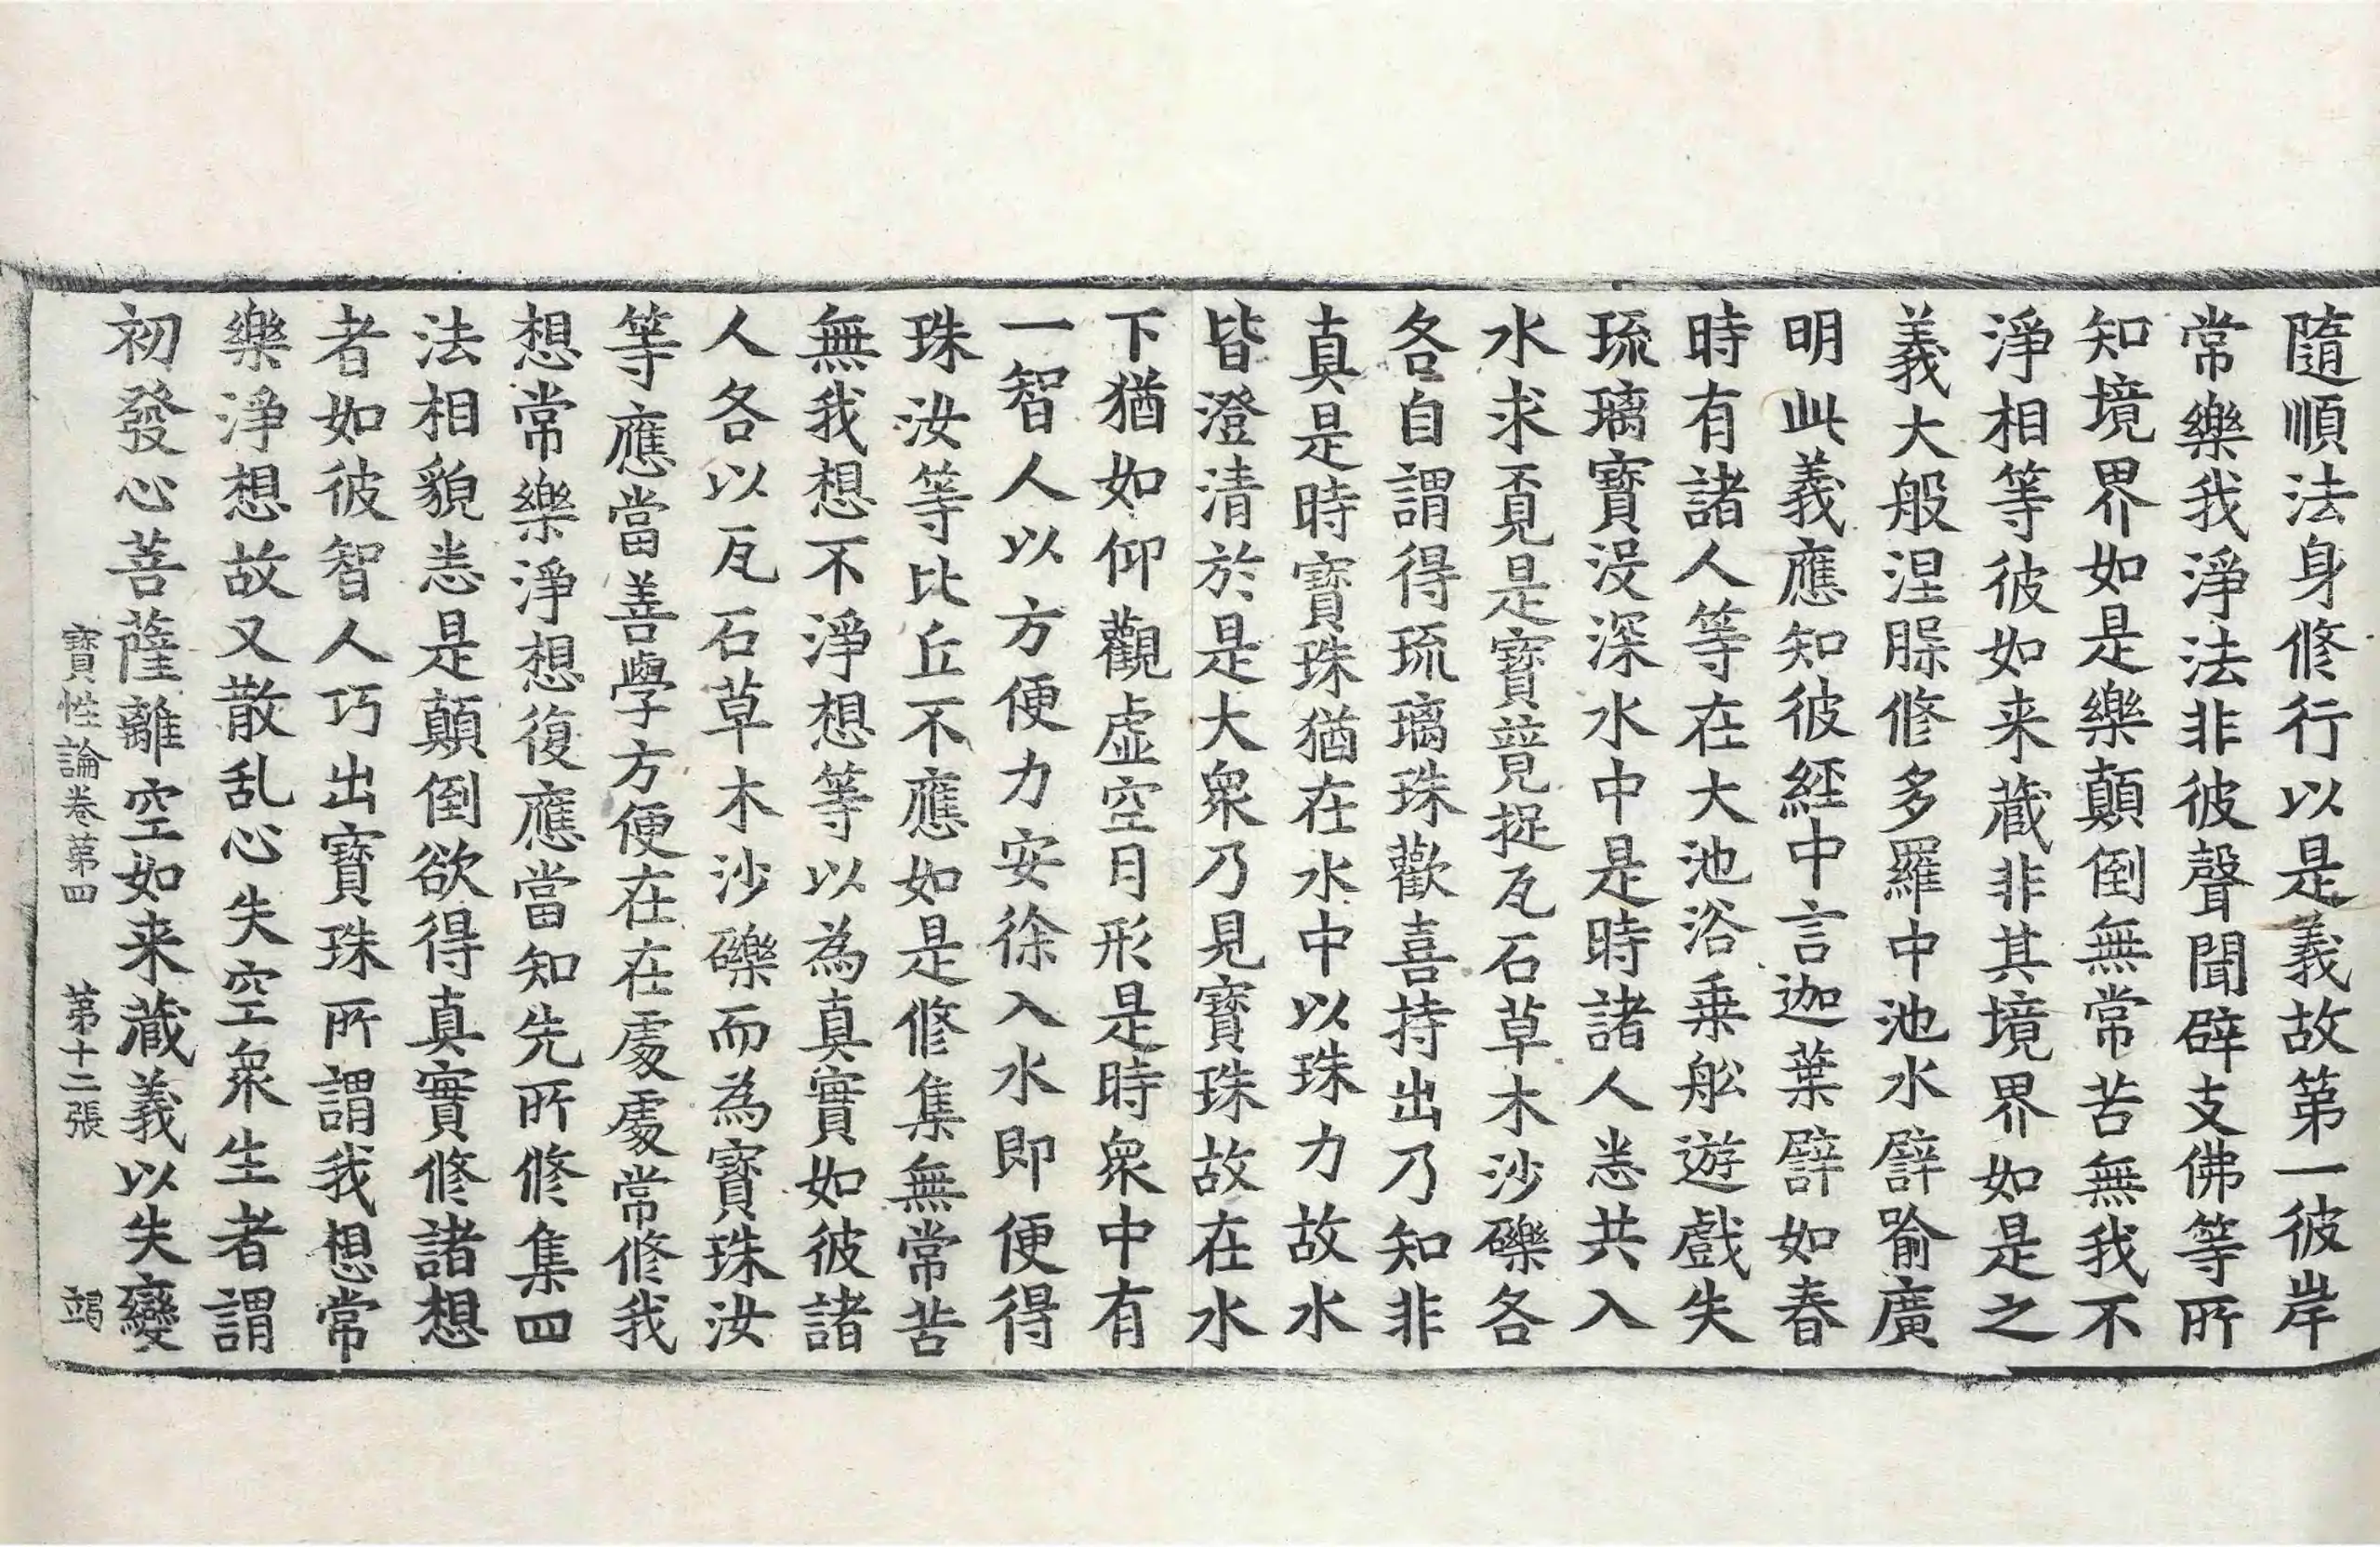 隨順法身修行以是義故第一彼岸
常樂我淨法非彼聲聞辟支佛等所
知境界如是樂顛倒無常苦無我不
淨相等彼如来蔵非其境界如是之
義大般涅脲修多羅中池水譬喻廣
明此義應知彼經中言迦葉譬如春
時有諸人等在大池浴乗舩遊戲失
琉璃寶没深水中是時諸人悉共入
水求覔是寶競捉瓦石草木沙礫各
各自謂得琉璃珠歡喜持出乃知非
真是時寶珠猶在水中以珠力故水
皆澄清於是大衆乃見寶珠故在水
下猶如仰觀虚空月形是時衆中有
一智人以方便力安徐入水即便得
珠汝等比丘不應如是修集無常苦
無我想不淨想等以為真實如彼諸
人各以瓦石草木沙礫而為寶珠汝
等應當善學方便在在處處常修我
想常樂淨想復應當知先所修集四
法相貌悉是顛倒欲得真實修諸想
者如彼智人巧出寶珠所謂我想常
樂淨想故又散乱心失空衆生者謂
初發心菩薩離空如来蔵義以失變
寶性論卷第四　第十二張　竭